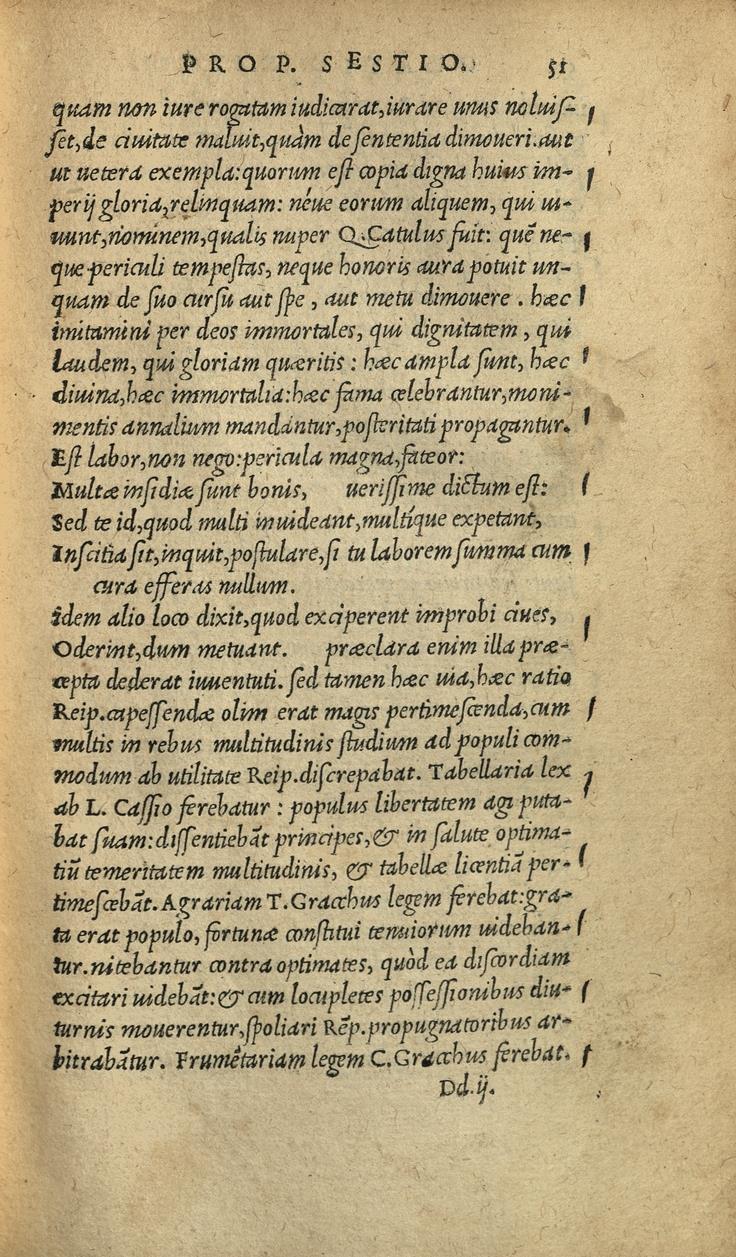 PRO P. SESTIO. 51
quam non iure rogatam iudicarat,iurare unus noluiſ-
ſet,de ciuitate maluit,quàm de ſententia dimoueri.aut
ut uetera exempla:quorum eſt copia digna huius im-
perij gloria,relinquam: néue eorum aliquem, qui ui-
uunt,nominem,qualis nuper Q.Catulus fuit: quē ne-
que periculi tempeſtas, neque honoris aura potuit un-
quam de ſuo curſu aut ſpe, aut metu dimouere. hæc
imitamini per deos immortales, qui dignitatem, qui
laudem, qui gloriam quæritis: hæc ampla ſunt, hæc
diuina,hæc immortalia:hæc fama celebrantur,moni-
mentis annalium mandantur,poſteritati propagantur.
Eſt labor,non nego:pericula magna,fateor:
Multæ inſidiæ ſunt bonis, ueriſſime dictum eſt:
Sed te id,quod multi inuideant,multíque expetant,
Inſcitia ſit,inquit,poſtulare,ſi tu laborem ſumma cum
cura efferas nullum.
idem alio loco dixit,quod exciperent improbi ciues,
Oderint,dum metuant. præclara enim illa præ-
cepta dederat iuuentuti. ſed tamen hæc uia,hæc ratio
Reip.capeſſendæ olim erat magis pertimeſcenda,cum
multis in rebus multitudinis ſtudium ad populi com-
modum ab utilitate Reip.diſcrepabat. Tabellaria lex
ab L. Caſſio ferebatur: populus libertatem agi puta-
bat ſuam:diſſentiebāt principes,& in ſalute optima-
tiū temeritatem multitudinis, & tabellæ licentiā per-
timeſcebāt. Agrariam T.Gracchus legem ferebat:gra-
ta erat populo, fortunæ conſtitui tenuiorum uideban-
tur.nitebantur contra optimates, quòd ea diſcordiam
excitari uidebāt:& cum locupletes poſſeſſionibus diu-
turnis mouerentur,ſpoliari Rēp.propugnatoribus ar-
bitrabātur. Frumētariam legem C.Gracchus ferebat.
Dd.ij.